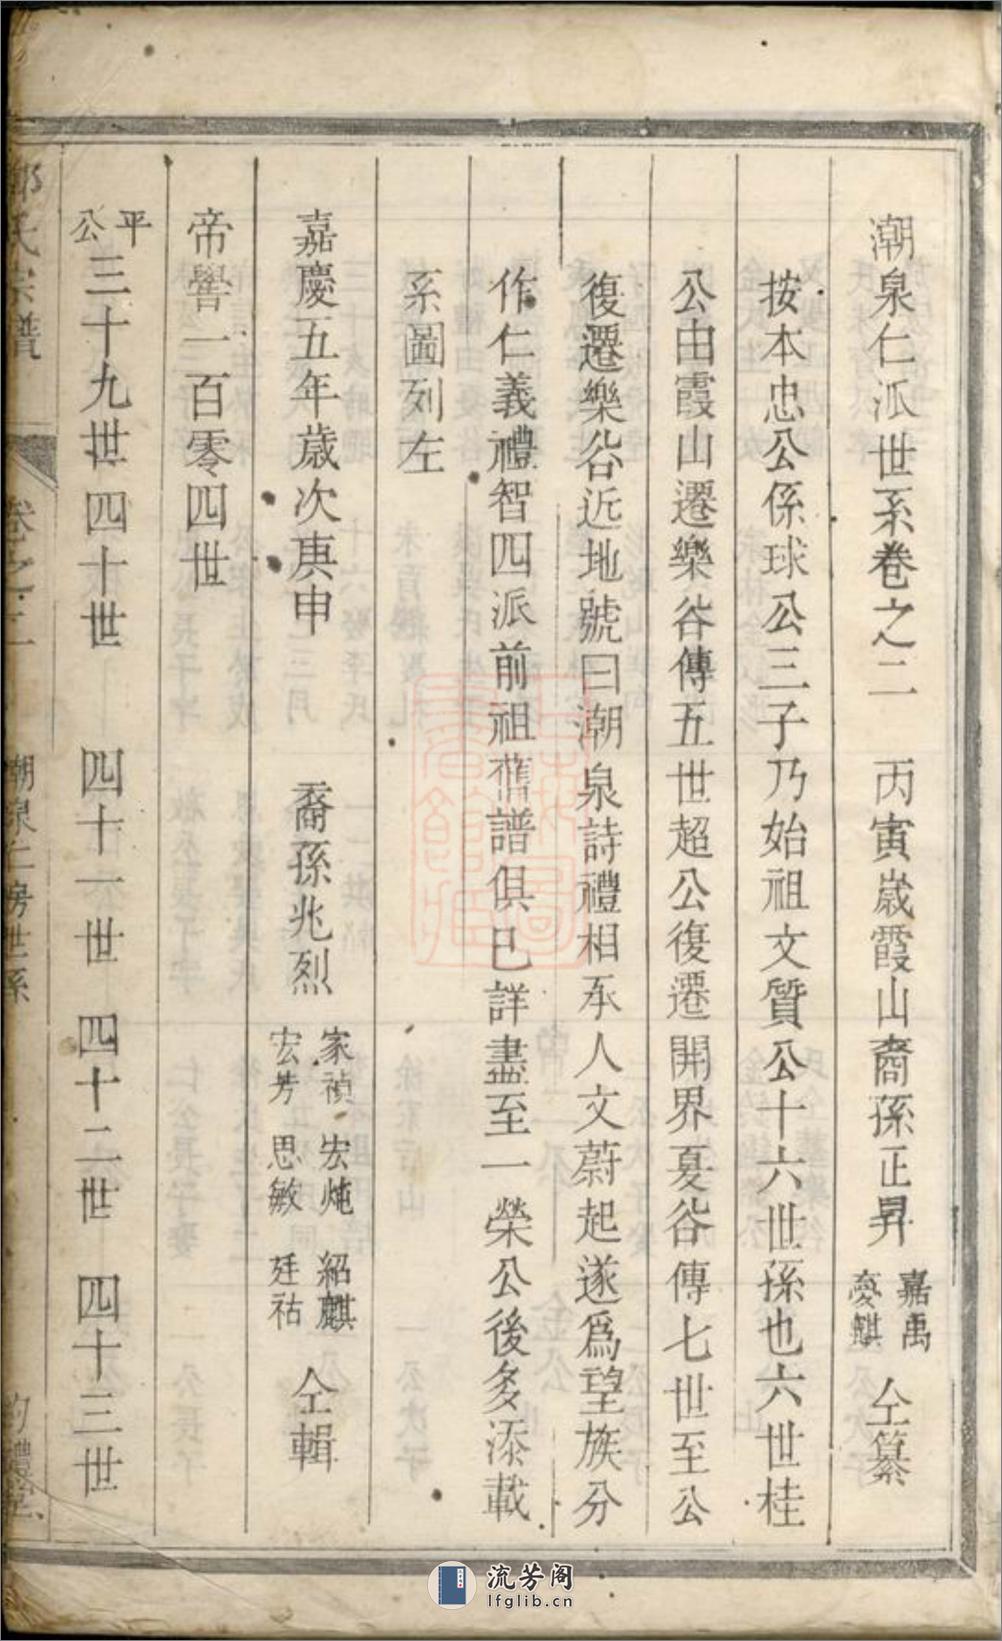 潮泉仁派世系卷之二　丙寅歲霞山裔孫正昇　嘉禹　夔麒　仝纂
按本忠公係球公三子乃始祖文質公十六世孫也六世桂
公由霞山遷樂谷傳五世超公復遷開界夏谷傳七世至公
復遷樂谷近地號曰潮泉詩禮相承人文蔚起遂爲望族分
作仁義禮智四派前祖舊譜俱已詳盡至一榮公後多添載
系圖列左
嘉慶五年歲次庚申　裔孫兆烈　家禎　宏芳　宏炖　思敏　紹麒　廷祜　仝輯
帝嚳一百零四世
平公三十九世　四十世　四十一世　四十二世　四十三世
氏宗譜　卷之二　潮泉仁房世系　禮堂
流芳阁
lfglib.cn